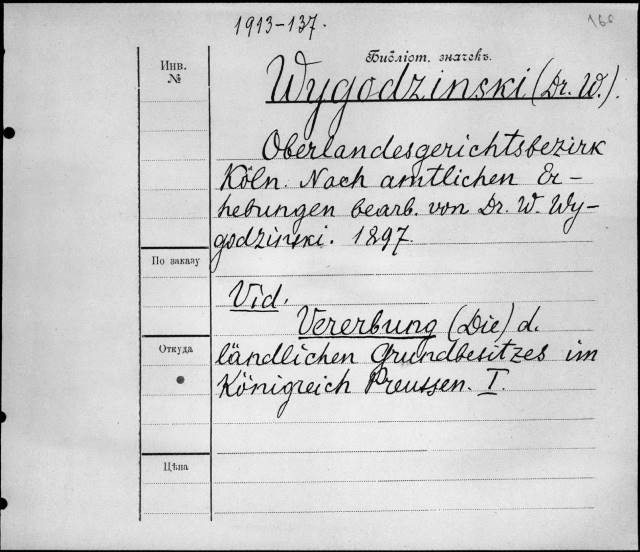 1913-137.
166
Инв.
№
Библіот. значекъ.
Wygodzinski (Dr. W.).
Oberlandesgerichtsbezirk
Köln. Nach amtlichen Er-
hebungen bearb. von Dr. W. Wy-
godzinski. 1897.
По заказу
Vid.
Vererbung (Die) d.
Откуда
ländlichen Grundbesitzes im
Königreich Preussen. I.
Цѣна